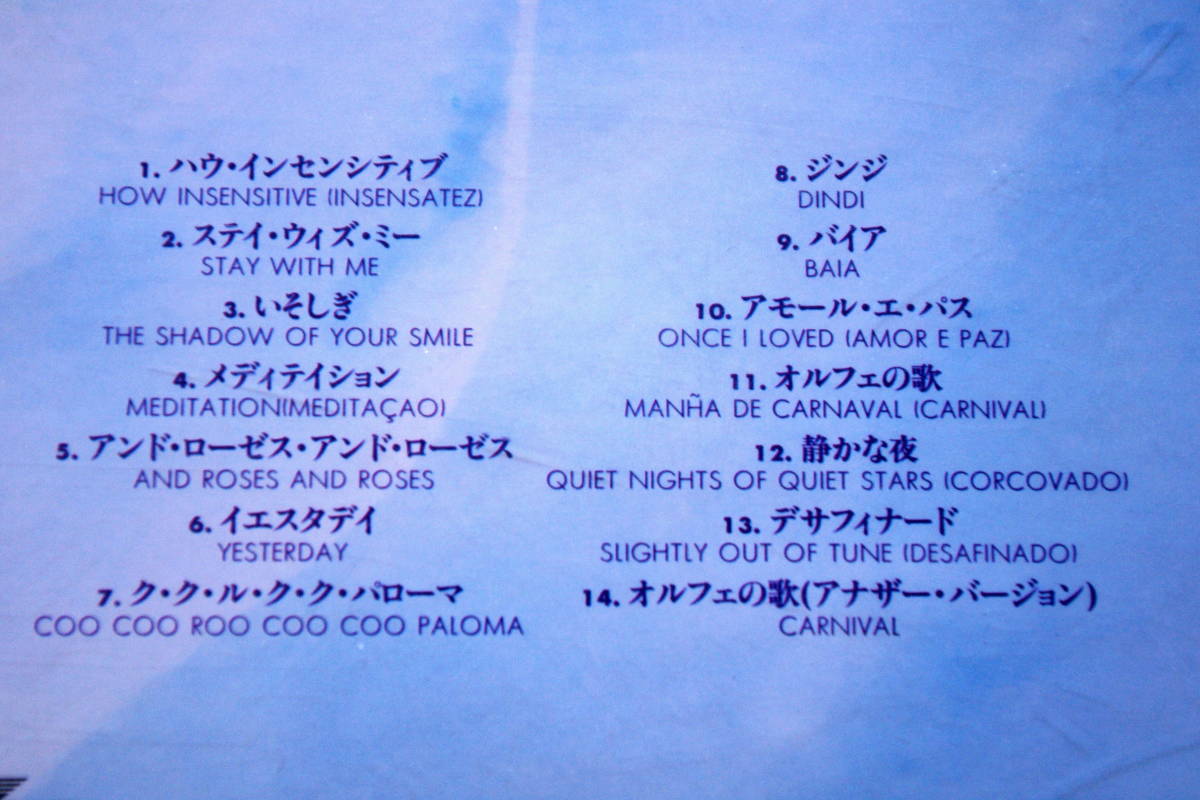 1. ハウ・インセンシティブ
HOW INSENSITIVE (INSENSATEZ)
2. ステイ・ウィズ・ミー
STAY WITH ME
3. いそしぎ
THE SHADOW OF YOUR SMILE
4. メディテイション
MEDITATION(MEDITAÇAO)
5. アンド・ローゼス・アンド・ローゼス
AND ROSES AND ROSES
6. イエスタデイ
YESTERDAY
7. ク・ク・ル・ク・ク・パローマ
COO COO ROO COO COO PALOMA
8. ジンジ
DINDI
9. バイア
BAIA
10. アモール・エ・パス
ONCE I LOVED (AMOR E PAZ)
11. オルフェの歌
MANH̃A DE CARNAVAL (CARNIVAL)
12. 静かな夜
QUIET NIGHTS OF QUIET STARS (CORCOVADO)
13. デサフィナード
SLIGHTLY OUT OF TUNE (DESAFINADO)
14. オルフェの歌(アナザー・バージョン)
CARNIVAL